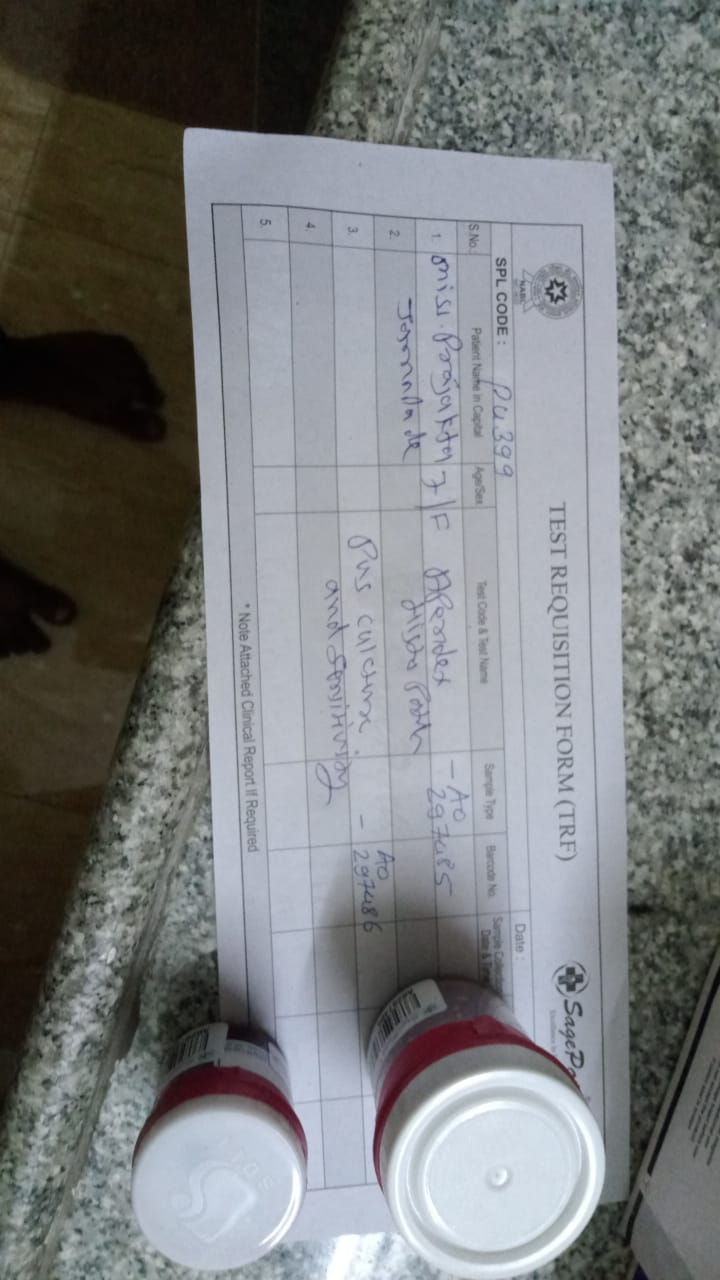 NABL
SagePa
TEST REQUISITION FORM (TRF)
Date :
SPL CODE : PU399
S.No. Patient Name in Capital Age/Sex Test Code & Test Name Sample Type Barcode No. Sample Collection Date & Time
1. miss. Prajakta 7/F Apendex - A0
histo Path 297485
2. 
3. Pus culture - A0
and sensitivity 297486
4.
5.
* Note Attached Clinical Report If Required